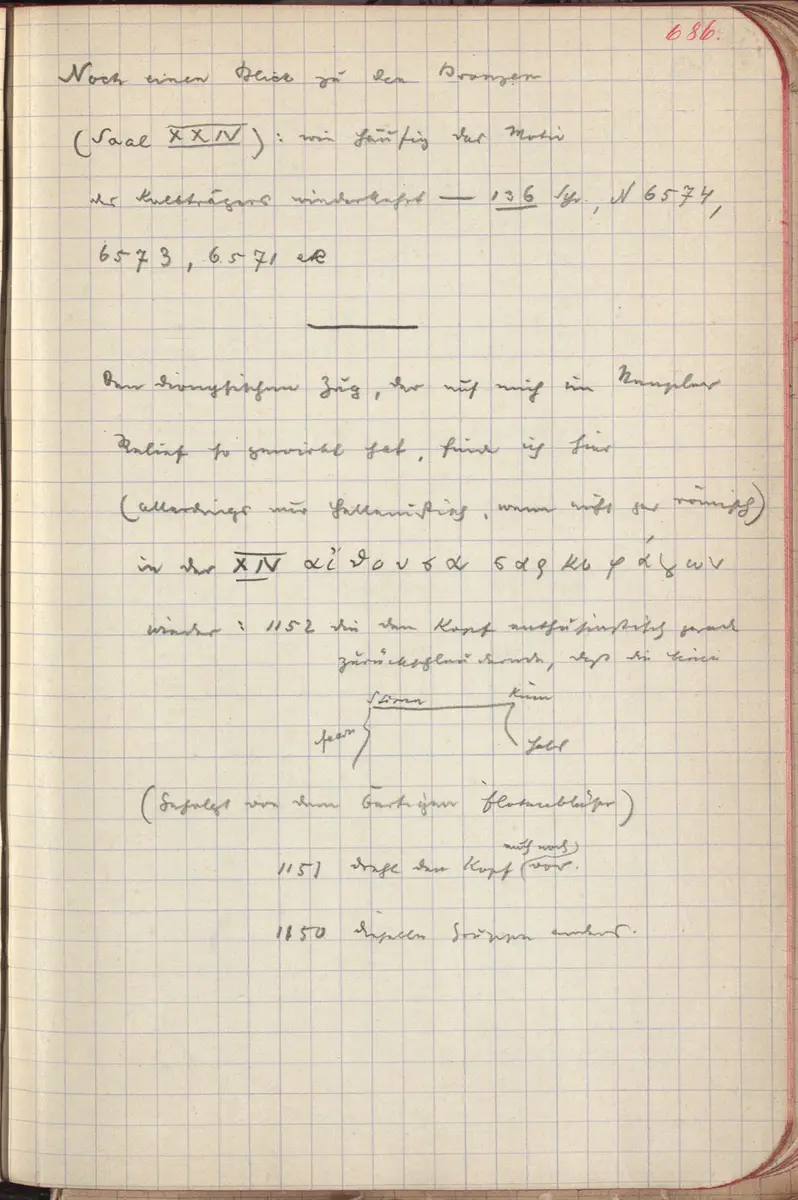 686.
Noch einen Blick zu den Bronzen
(Saal XXIV): wie häufig das Motiv
des Kalbträgers wiederkehrt — 136 Syr., N 6574,
6573, 6571 etc
Den dionysischen Zug, der auf mich im Neapler
Relief so gewirkt hat, finde ich hier
(allerdings nur hellenistisch, wenn nicht gar römisch)
in der XIV αἴθουσα σαρκοφάγων
wieder: 1152 die den Kopf enthusiastisch gerade
zurückschleudernde, daß die Linie
Stirn Kinn
Haar Hals
(gefolgt von dem bärtigen Flötenbläser)
auch noch
1151 dreht den Kopf (vor.
1150 dieselbe Gruppe anders.